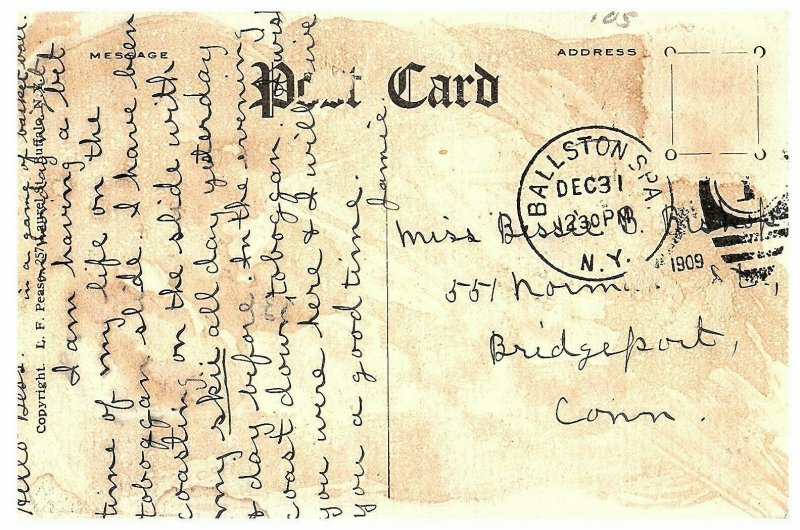 '05
MESSAGE
ADDRESS
Post Card
BALLSTON SPA.
DEC 31
12 30 PM
N.Y.
1909
Miss Bessie B.
551 Norm
Bridgeport,
Conn.
Hello Bess. in a game of basket ball.
Copyright. L. F. Pease, 257 Laurel St. Buffalo, N.Y.
I am having a bet
time of my life on the
toboggan slide. I have been
coasting on the slide with
my skii all day yesterday
& day before. In the evening
coast down toboggan. I wish
you were here & I will give
you a good time.
Jamie